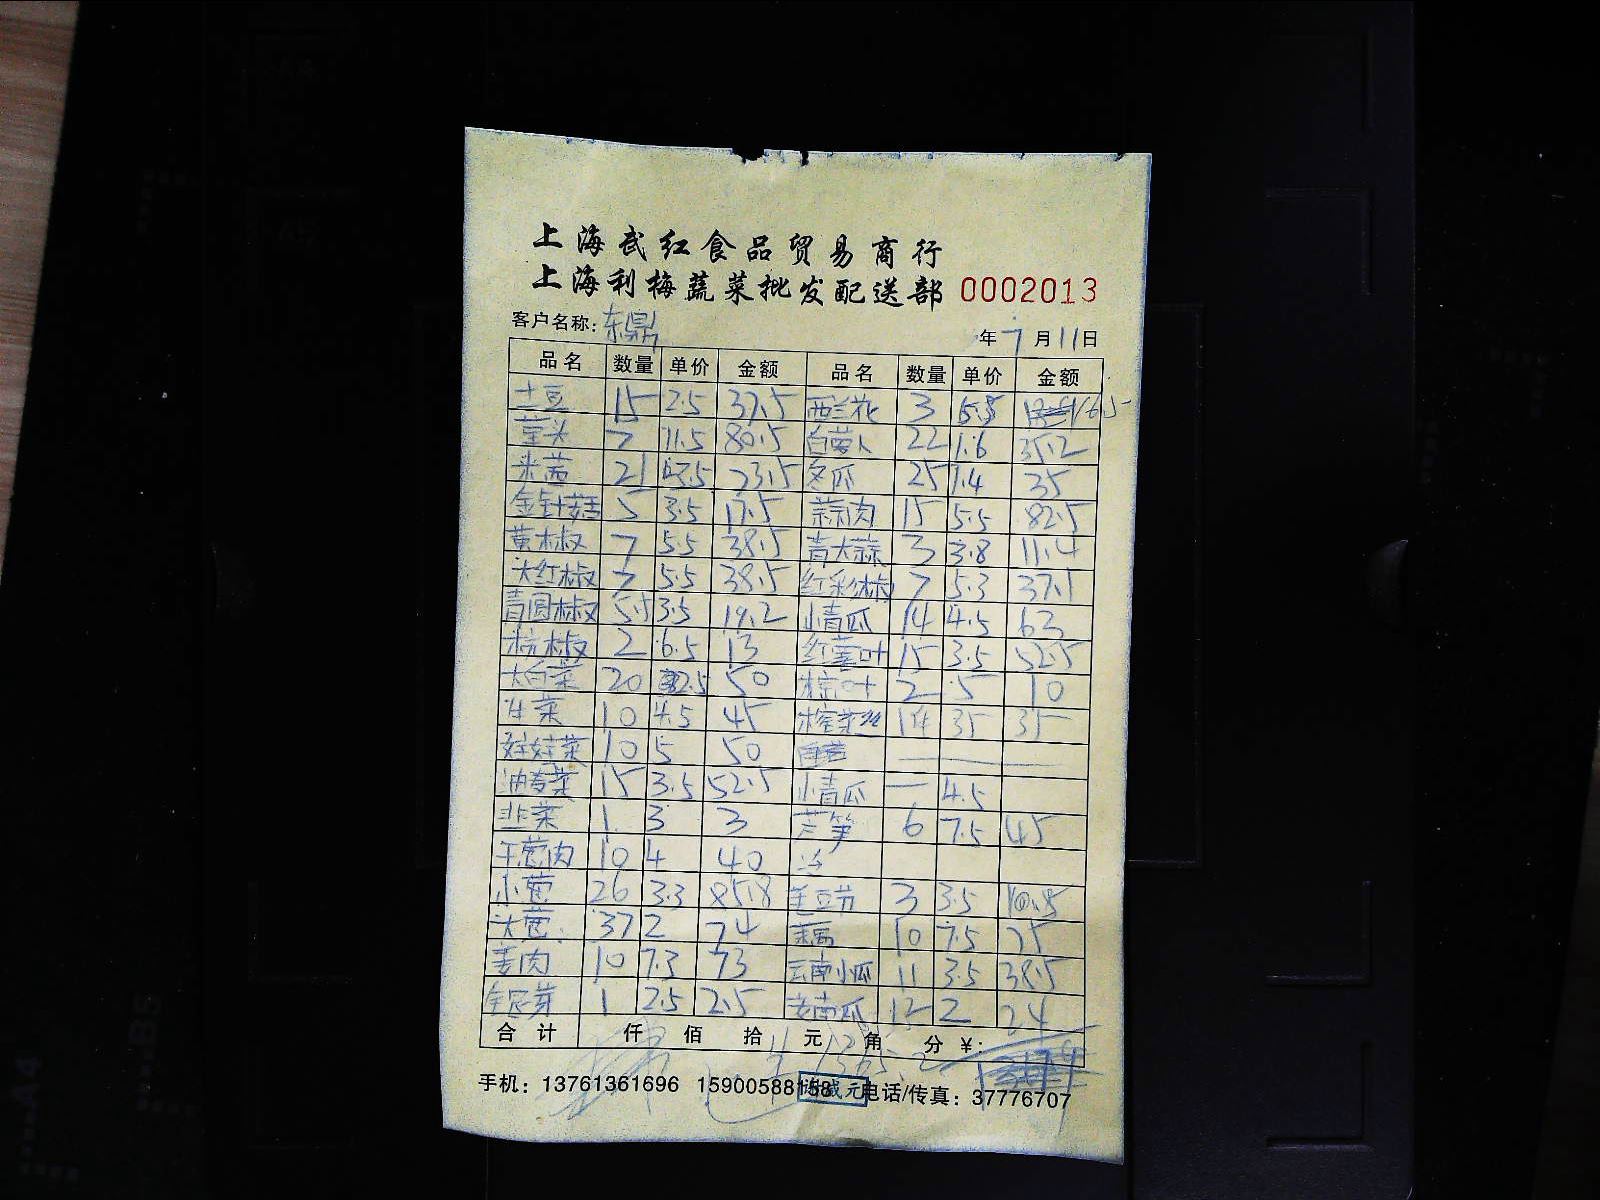 上海武红食品贸易商行
上海利梅蔬菜批发配送部 0002013
客户名称: 东鼎 年 7 月 11 日
品名 数量 单价 金额 品名 数量 单价 金额
土豆 15 2.5 37.5 西兰花 3 5.5 16.5
7 11.5 80.5 白萝卜 22 1.6 35.2
米苋 21 23.5 冬瓜 25 1.4 35
金针菇 5 3.5 17.5 蒜肉 15 5.5 82.5
黄椒 7 5.5 38.5 青大蒜 3 3.8 11.4
大红椒 7 5.5 38.5 红彩椒 7 5.3 37.1
青圆椒 5.5 3.5 19.2 小青瓜 14 4.5 63
杭椒 2 6.5 13 红薯叶 15 3.5 52.5
大白菜 20 2.5 50 粽叶 2 5 10
生菜 10 4.5 45 榨菜丝 1件 35 35
娃娃菜 10 5 50
油麦菜 15 3.5 52.5 小青瓜 — 4.5
韭菜 1 3 3 芦笋 6 7.5 45
干葱肉 10 4 40
小葱 26 3.3 85.8 3 3.5 10.5
大葱 37 2 74 藕 10 7.5 75
姜肉 10 7.3 73 云南小瓜 11 3.5 38.5
1 2.5 2.5 老南瓜 12 2 24
合计 仟 佰 拾 元 角 分 ¥:
手机: 13761361696 15900588158 电话/传真: 37776707